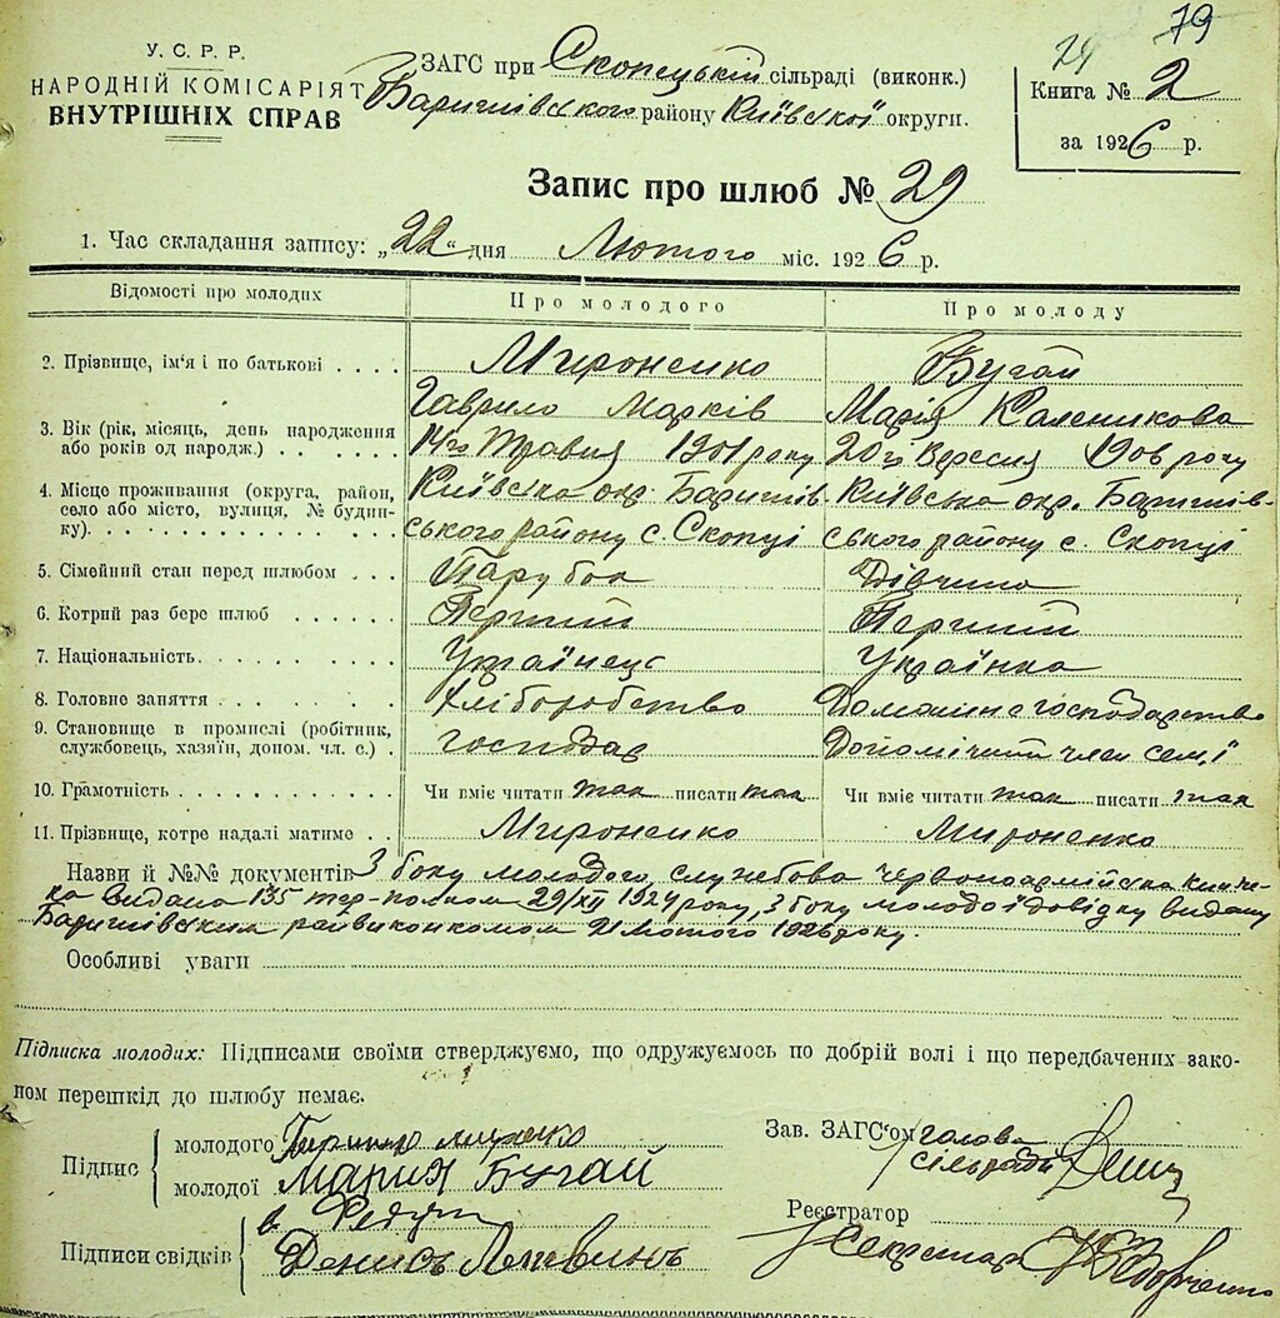 79
24
У. С. Р. Р.
НАРОДНІЙ КОМІСАРІЯТ
ВНУТРІШНІХ СПРАВ
ЗАГС при Скопецькій сільраді (виконк.)
Баришівського району Київської округи.
Книга № 2
за 1926 р.
Запис про шлюб № 29
1. Час складання запису: „22“ дня Лютого міс. 1926 р.
Відомості про молодих Про молодого Про молоду
2. Прізвище, ім'я і по батькові . . . . Мироненко Бугай
Гаврило Марків Марія Каленикова
3. Вік (рік, місяць, день народження або років од народж.) . . . . . . 14го Травня 1901 року 20го Вересня 1906 року
4. Місце проживання (округа, район, село або місто, вулиця, № будинку). . . . . . . . . . . . . . . Київська окр. Баришівського району с. Скопці Київська окр. Баришівського району с. Скопці
5. Сімейний стан перед шлюбом . . . Парубок Дівчина
6. Котрий раз бере шлюб . . . . . . Перший Перший
7. Національність. . . . . . . . . . Українець Українка
8. Головне заняття . . . . . . . Хліборобство Домашнє господарство
9. Становище в промислі (робітник, службовець, хазяїн, допом. чл. с.) . господар Допомічний член сем'ї
10. Грамотність . . . . . . . . . . . . Чи вміє читати так писати так Чи вміє читати так писати так
11. Прізвище, котре надалі матиме . . Мироненко Мироненко
Назви й №№ документів З боку молодого службова червоноармійська книже-
ка видана 135 тер-полком 29/XII 1924 року, З боку молодої довідку видану
Баришівським райвиконкомом 21 Лютого 1926 року.
Особливі уваги
Підписка молодих: Підписами своїми стверджуємо, що одружуємось по добрій волі і що передбачених зако-
ном перешкід до шлюбу немає.
Підпис
молодого
молодої Мария Бугай
Підписи свідків
Денисъ
Зав. ЗАГС'ом голова
сільради
Реєстратор
Секретар